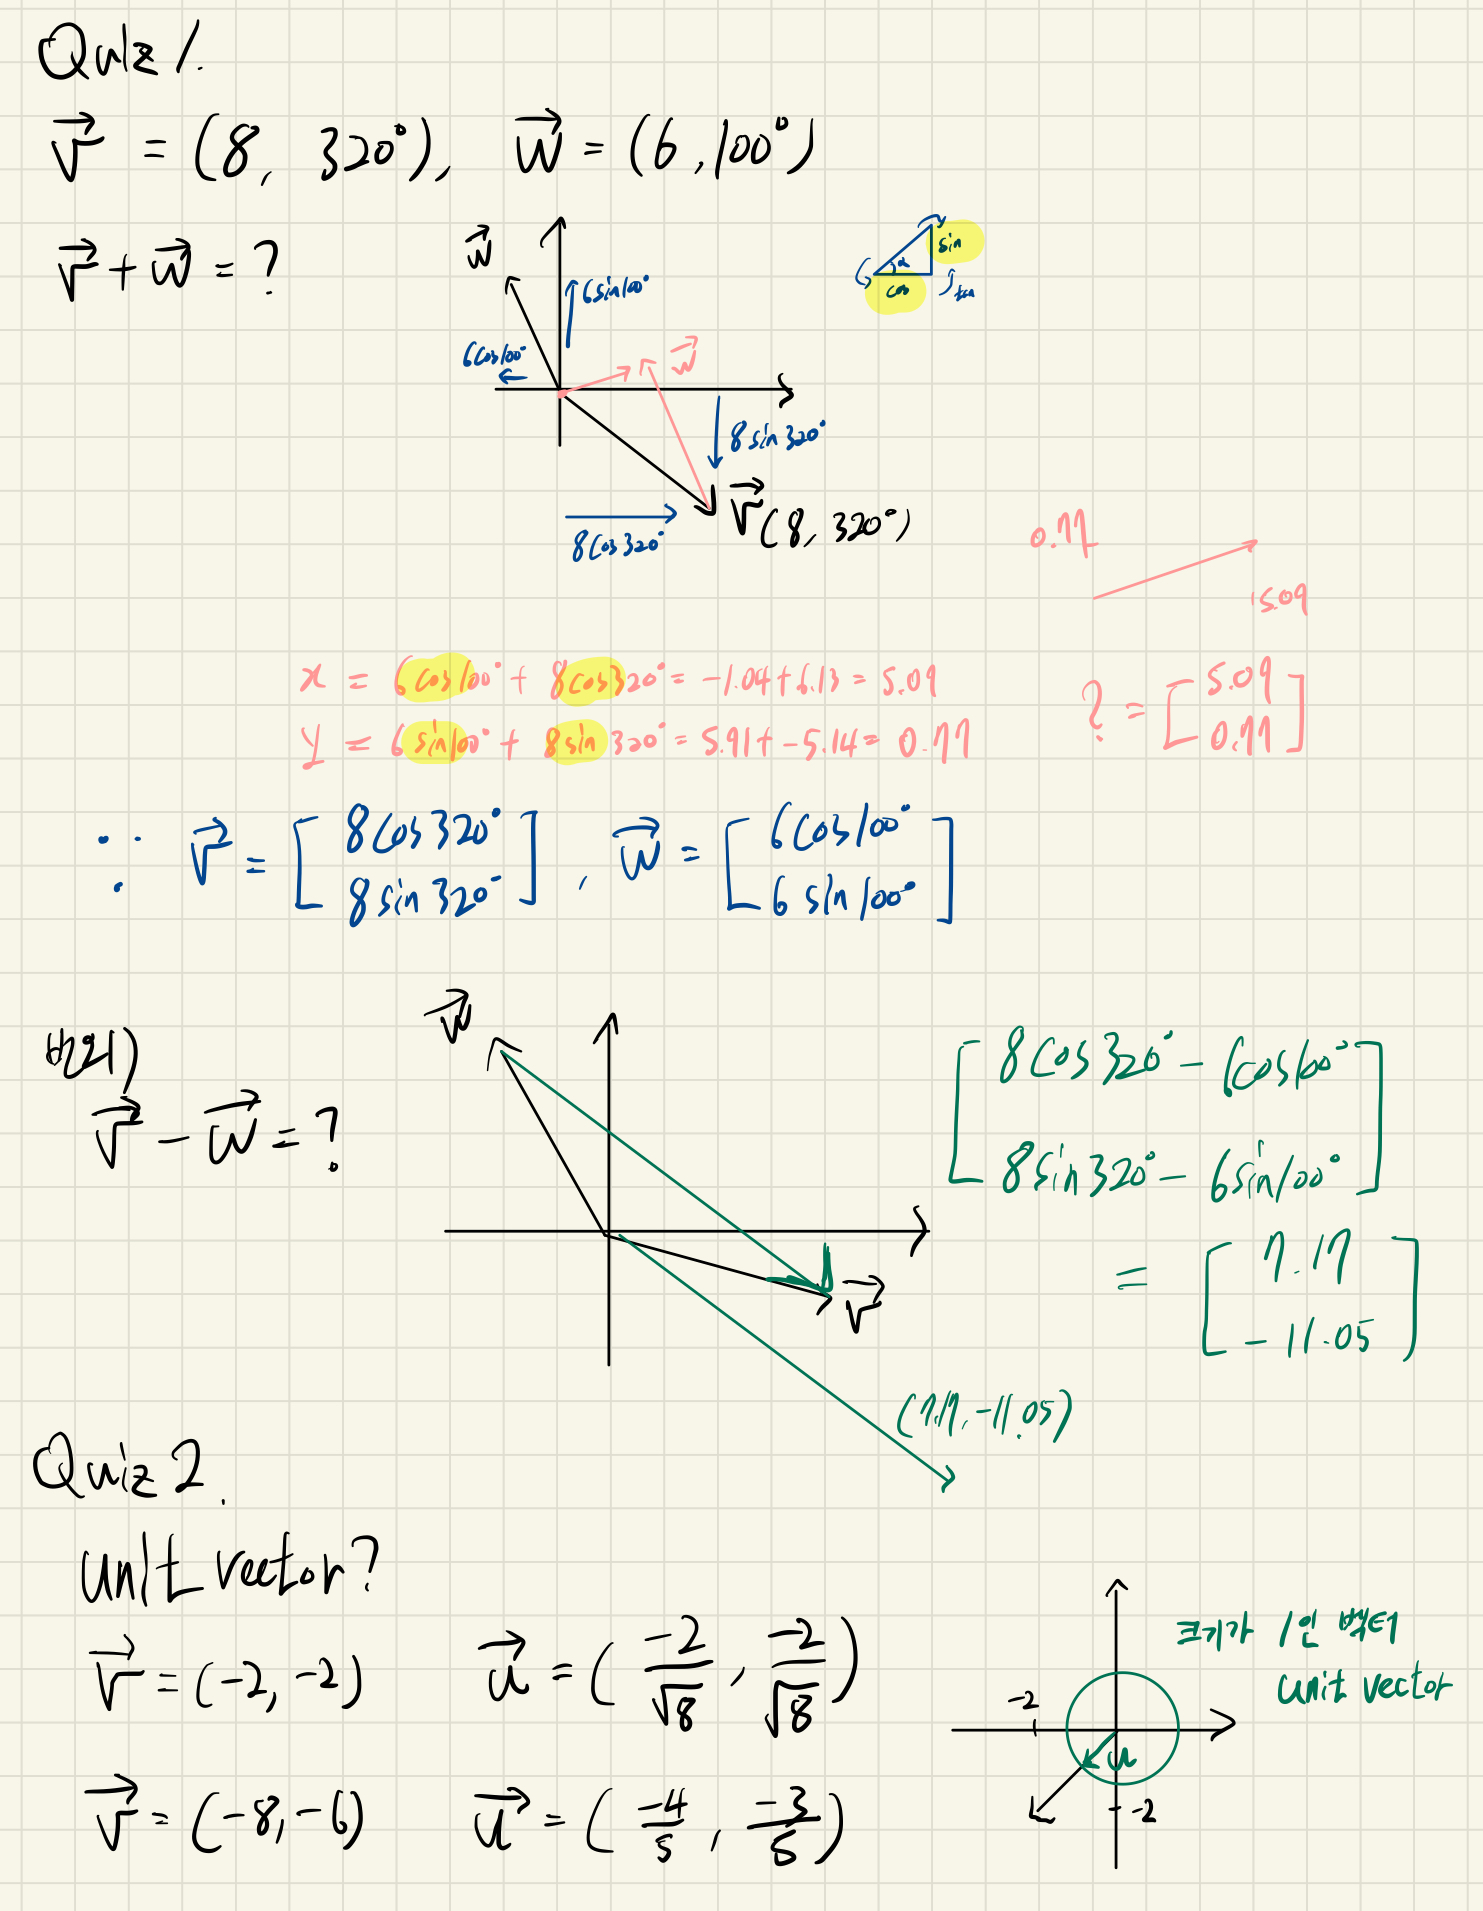 Quiz 1.
v⃗ = (8, 320°), w⃗ = (6, 100°)
v⃗ + w⃗ = ?
w⃗
6sin100°
6cos100°
w⃗
8sin320°
v⃗(8, 320°)
8cos320°
sin
α
cos
tan
0.77
5.09
x = 6cos100° + 8cos320° = -1.04+6.13 = 5.09
y = 6sin100° + 8sin320° = 5.91+ -5.14 = 0.77
? = [5.09
0.77]
∵ v⃗ = [8cos320°
8sin320°], w⃗ = [6cos100°
6sin100°]
번외)
v⃗ - w⃗ = ?
w⃗
v⃗
[8cos320° - 6cos100°
8sin320° - 6sin100°]
= [7.17
-11.05]
(7.17, -11.05)
Quiz 2.
unit vector?
v⃗ = (-2, -2) u⃗ = (-2/√8, -2/√8)
v⃗ = (-8, -6) u⃗ = (-4/5, -3/5)
크기가 1인 벡터
unit vector
-2
u
-2